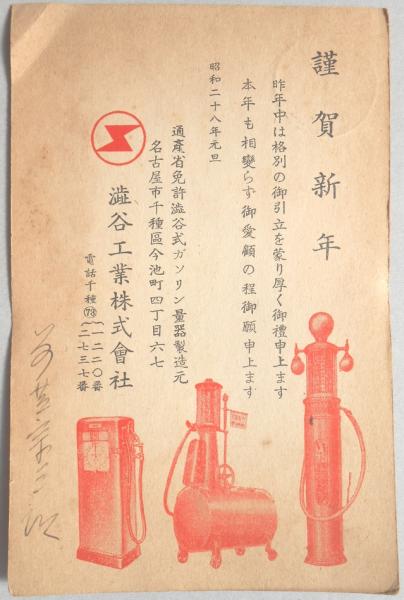 謹賀新年
昨年中は格別の御引立を蒙り厚く御禮申上ます
本年も相變らず御愛顧の程御願申上ます
昭和二十八年元旦
通產省免許澁谷式ガソリン量器製造元
名古屋市千種區今池町四丁目六七
澁谷工業株式會社
電話千種(73)(一二二〇番
(二七三七番